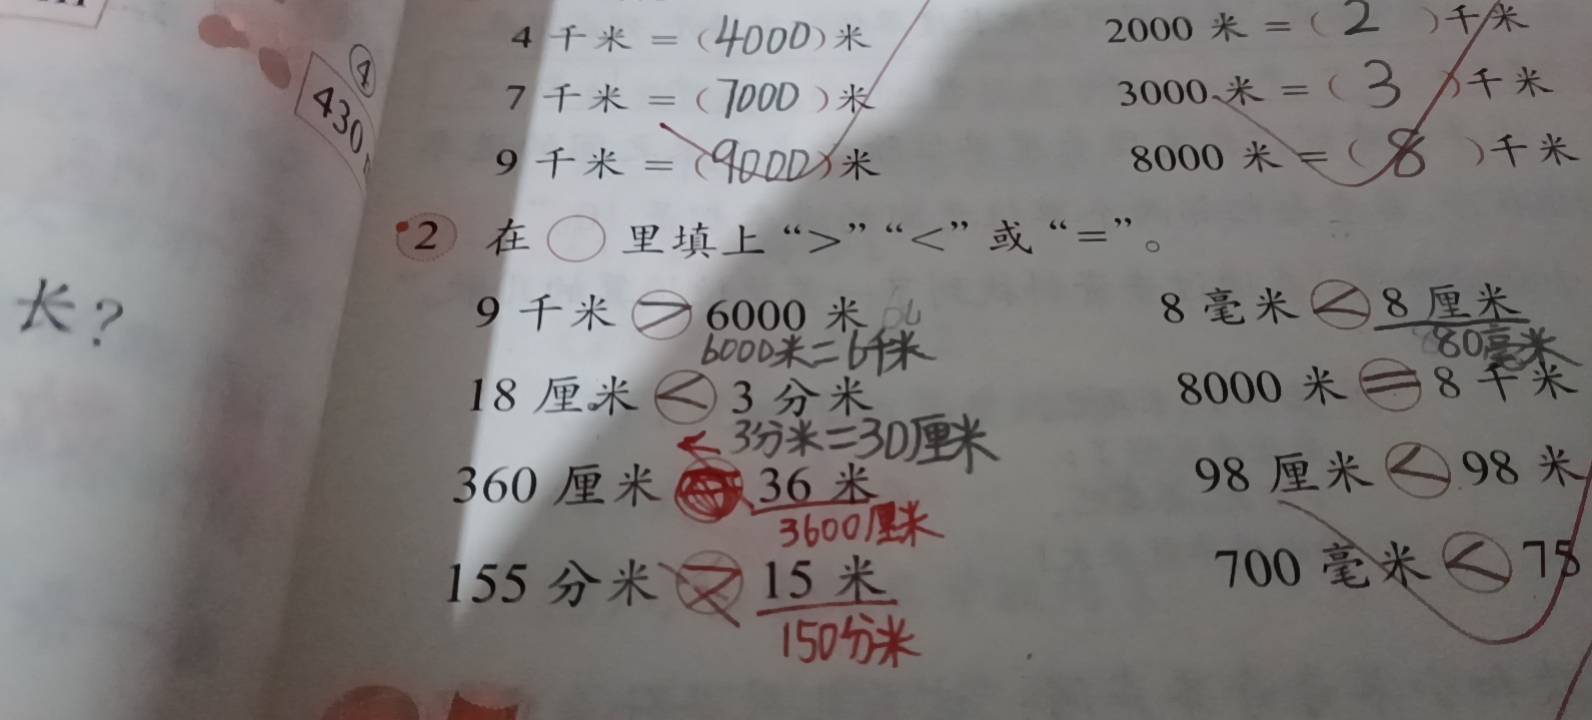 ④
430
长？
4 千米 =（4000）米
2000 米 =（2）千米
7 千米 =（7000）米
3000 米 =（3）千米
9 千米 =（9000）米
8000 米 =（8）千米
2 在 ○ 里填上“>”“<”或“=”。
9 千米 > 6000 米
6000米=6千米
8 毫米 < 8 厘米
80毫米
18 厘米 < 3 分米
3分米=30厘米
8000 米 = 8 千米
360 厘米 < 36 米
3600厘米
98 厘米 < 98 米
155 分米 > 15 米
150分米
700 毫米 < 75